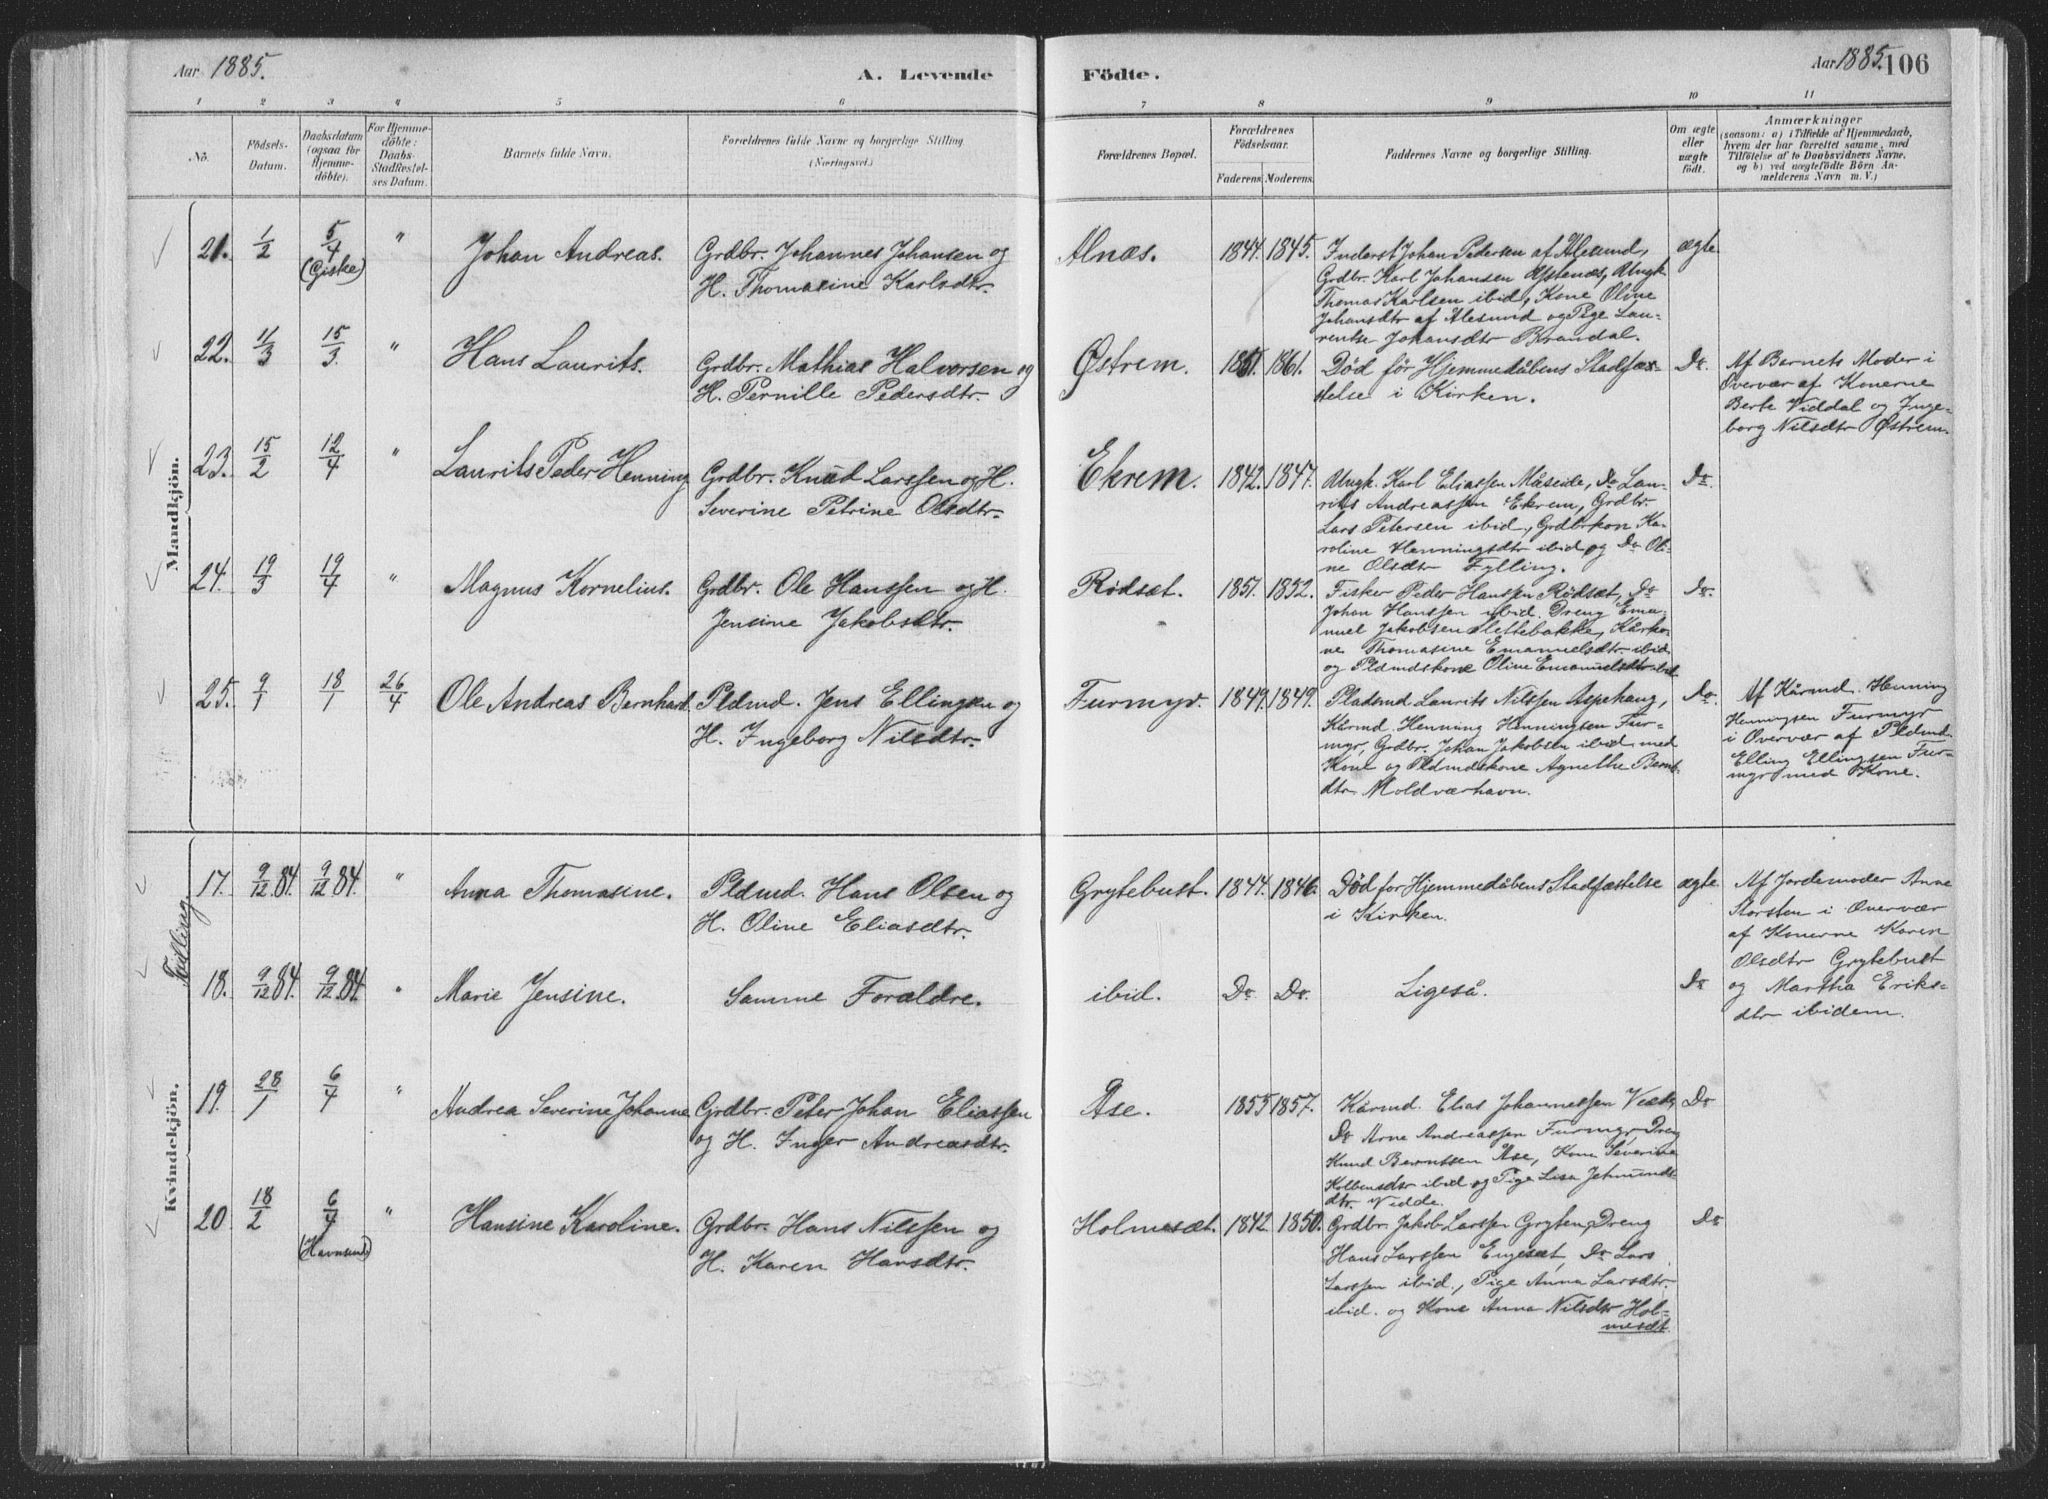 Aar 1885.
A. Levende Födte.
Aar 1885. 106
1 2 3 4 5 6 7 8 9 10 11
No.
Födsels-Datum.
Daabsdatum (ogsaa for Hjemmedöbte).
For Hjemmedöbte: Daabs-Stadfæstelses Datum.
Barnets fulde Navn.
Forældrenes fulde Navne og borgerlige Stilling (Næringsvei.)
Forældrenes Bopæl.
Forældrenes Födselsaar.
Faderens. Moderens.
Faddernes Navne og borgerlige Stilling.
Om ægte eller uægte födt.
Anmærkninger
(saasom: a) i Tilfælde af Hjemmedaab,
hvem der har forrettet samme, med
Tilföielse af to Daabsvidners Navne,
og b) ved uægtefödte Börn An-
melderens Navn m. V.)
Mandkjön.
21. 1/2 5/4 (Giske) " Johan Andreas. Grdbr. Johannes Johansen og
H. Thomasine Karlsdtr.
Alnæs. 1844. 1845. Inderst Johan Pedersen af Alesund,
Grdbr. Karl Johansen Ufstenæs, Ungk.
Thomas Karlsen ibid, Kone Oline
Johansdtr af Alesund og Pige Lau-
rentse Johansdtr Brandal.
ægte
22. 11/3 15/3. " Hans Laurits. Grdbr. Mathias Halvorsen og
H. Pernille Pedersdtr.
Østrem. 1851. 1861. Død før Hjemmedåbens Stadfæs-
telse i Kirken.
Do. Af Barnets Moder i
Overvær af Konerne
Berte Viddal og Inge-
borg Nilsdtr Østrem.
23. 15/2 12/4 " Laurits Peder Henning Grdbr. Knud Larssen og H.
Severine Petrine Olsdtr.
Ekrem. 1842. 1847. Ungk. Karl Eliassen Måseide, Do Lau-
rits Andreassen Ekrem, Grdbr.
Lars Petersen ibid, Grdbrkon Ka-
roline Henningsdtr ibid og Do Oli-
ne Olsdtr Fylling.
Do.
24. 19/3 19/4 " Magnus Kornelius. Grdbr. Ole Hanssen og H.
Jensine Jakobsdtr.
Rødsæt. 1851. 1852. Fisker Peder Hanssen Rødsæt, Do
Johan Hanssen ibid, Dreng Ema-
nuel Jakobsen Slettebakke, Kårko-
ne Thomasine Emanuelsdtr ibid
og Pldmdskone Oline Emanuelsdtr ibid
Do.
25. 9/1 18/1 26/4 Ole Andreas Bernhard. Pldmd. Jens Ellingsen og
H. Ingeborg Nilsdtr.
Furmyr. 1849. 1849. Pladsmd Laurits Nilssen Aspehaug,
Kårmd Henning Henningsen Fur-
myr, Grdbr. Johan Jakobsen ibid med
Kone og Pldmdskone Agnethe Bernt-
dtr. Moldværhavn.
Do. Af Kårmd. Henning
Henningsen Furmyr
i Overvær af Pldmd
Elling Ellingsen Fur-
myr med Kone.
Kvindekjön.
Tvilling
17. 9/12.84. 9/12.84. " Anna Thomasine. Pldmd. Hans Olsen og
H. Oline Eliasdtr.
Grytebust. 1844. 1846. Død for Hjemmedåbens Stadfæstelse
i Kirken.
ægte Af Jordemoder Anne
Storsten i Overvær
af Konerne Karen
Olsdtr Grytebust
og Martha Eriks-
dtr ibidem.
18. 9/12.84. 9/12.84. " Marie Jensine. Samme Forældre.
ibid. Do. Do. Ligeså. Do
19. 28/1 6/4 " Andrea Severine Johanne Grdbr. Peter Johan Eliassen
og H. Inger Andreasdtr.
Ase. 1855 1857. Kårmd. Elias Johannessen
Do Arne Andreassen Furmyr, Dreng
Knud Berntssen Ase, Kone Severine
Kolbensdtr ibid og Pige Lisa Jetmunds-
dtr. Vidde.
Do
20. 18/2 6/4 (Havnsund) " Hansine Karoline. Grdbr. Hans Nilssen og
H. Karen Hansdtr.
Holmesæt. 1842. 1850. Grdbr. Jakob Larssen Gryten, Dreng
Hans Larssen Engesæt, Do Lars
Larssen ibid., Pige Anna Larsdtr.
ibid. og Kone Anna Nilsdtr Hol-
mesæt.
Do